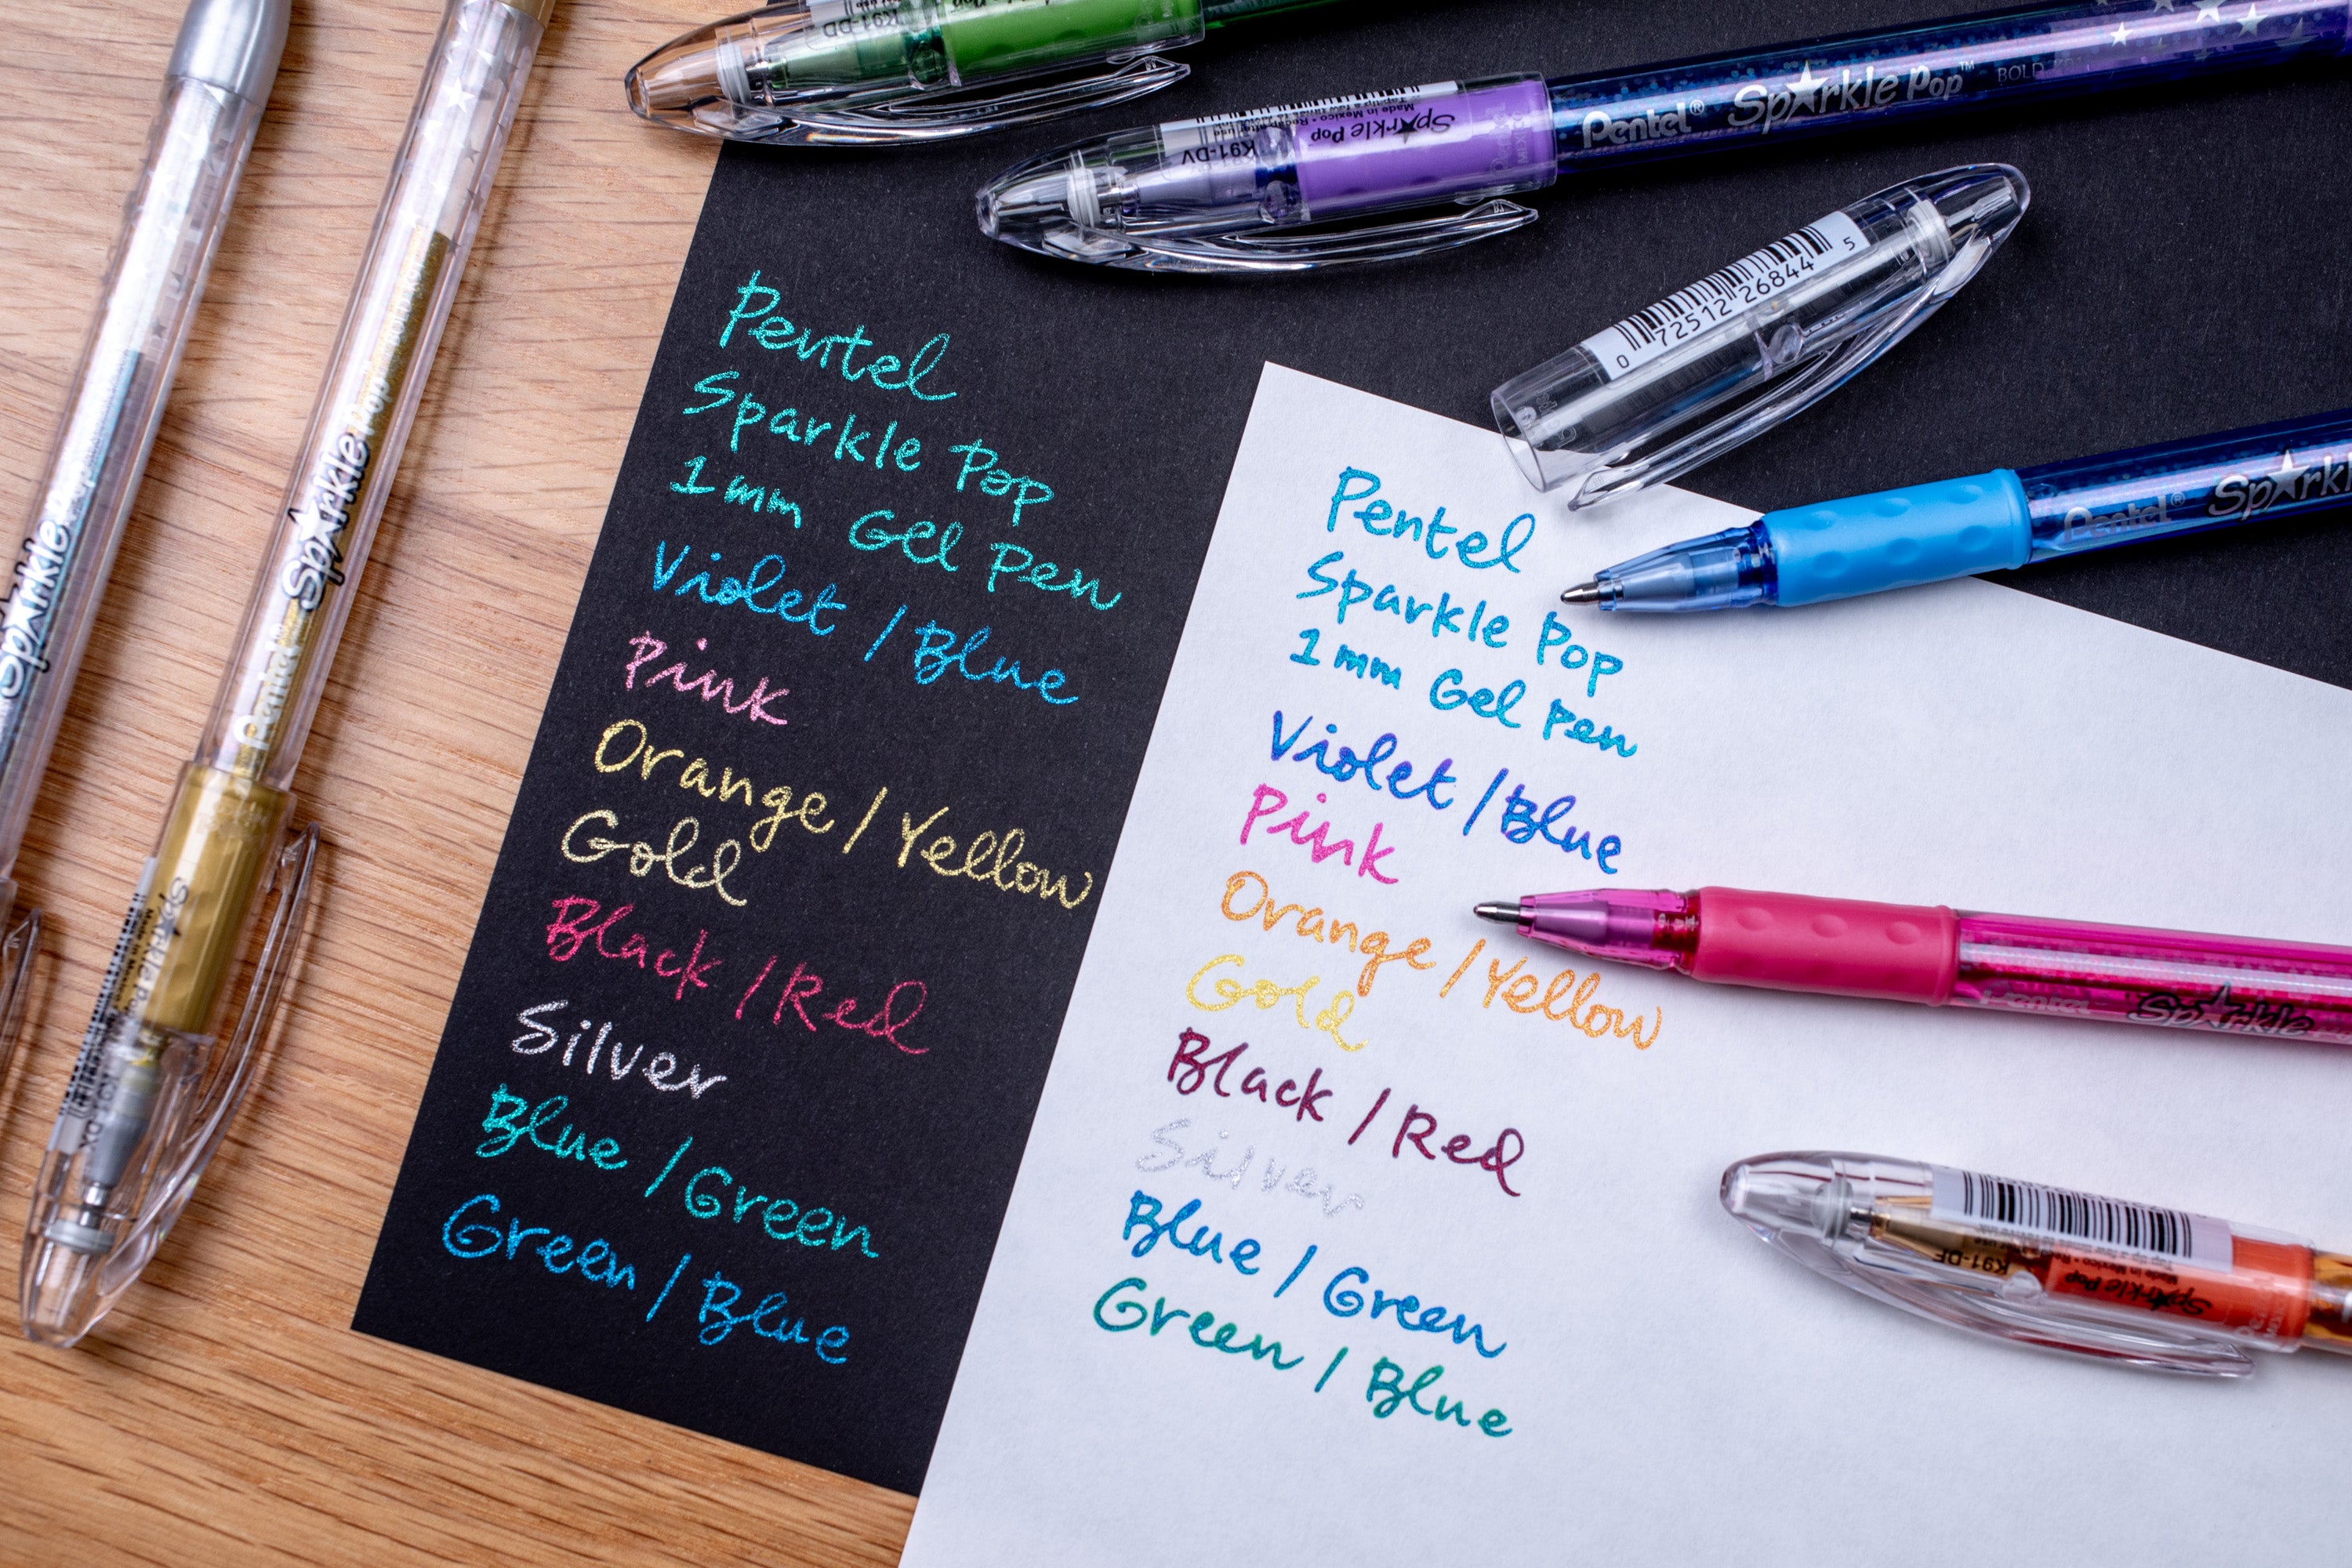 Sparkle
Pentel Sparkle Pop
K91-DD
Sparkle Pop
Made in Mexico
K91-DV
Pentel® Sparkle Pop™ BOLD
0 72512 26844 5
Pentel® Sparkl
Pentel
Sparkle Pop
1mm Gel Pen
Violet / Blue
Pink
Orange / Yellow
Gold
Black / Red
Silver
Blue / Green
Green / Blue
Pentel
Sparkle Pop
1mm Gel Pen
Violet / Blue
Pink
Orange / Yellow
Gold
Black / Red
Silver
Blue / Green
Green / Blue
Pentel Sparkle
K91-DF
Sparkle Pop
Made in Mexico